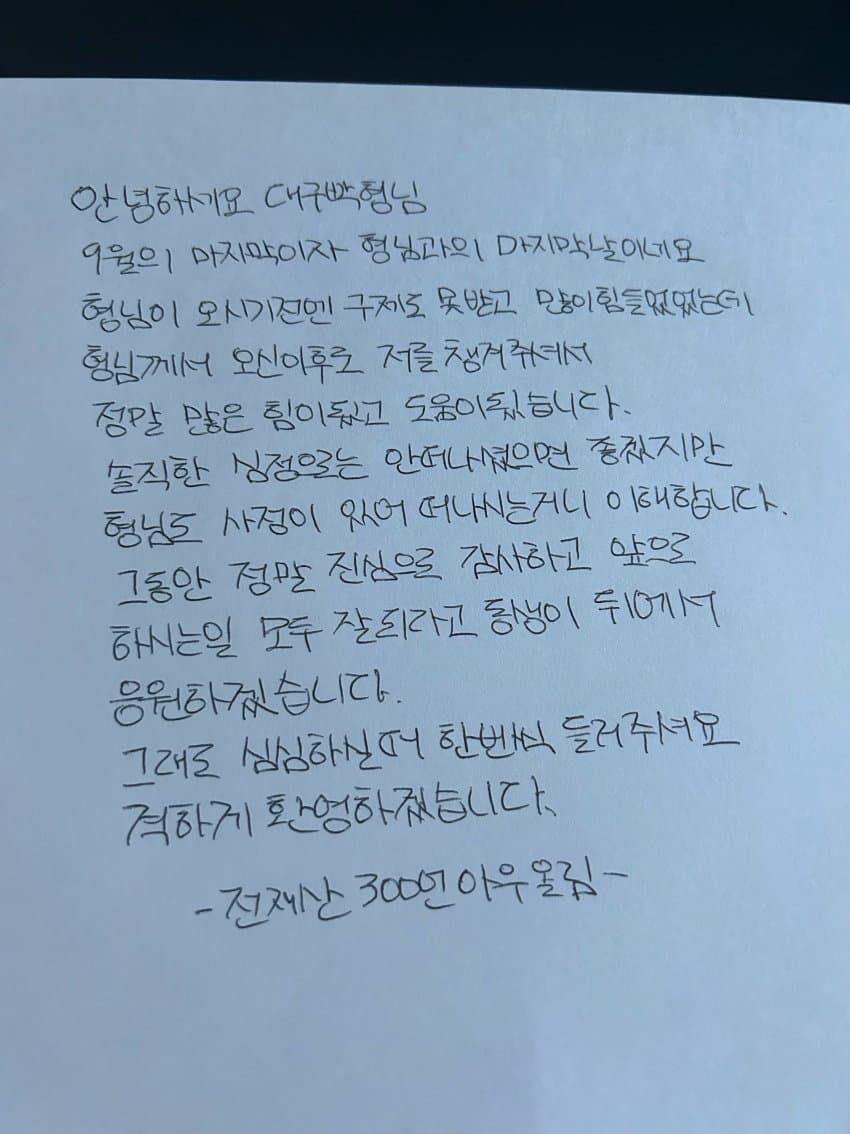 안녕하세요 대구박형님
9월의 마지막이자 형님과의 마지막날이네요
형님이 오시기전엔 구제도 못받고 많이힘들었었는데
형님께서 오신이후로 저를 챙겨주셔서
정말 많은 힘이됬고 도움이됬습니다.
솔직한 심정으로는 안떠나셨으면 좋겠지만
형님도 사정이 있어 떠나시는거니 이해합니다.
그동안 정말 진심으로 감사하고 앞으로
하시는일 모두 잘되라고 동생이 뒤에서
응원하겠습니다.
그래도 심심하실때 한번씩 들러주셔요
격하게 환영하겠습니다.
-전재산 300언 아우 올림-